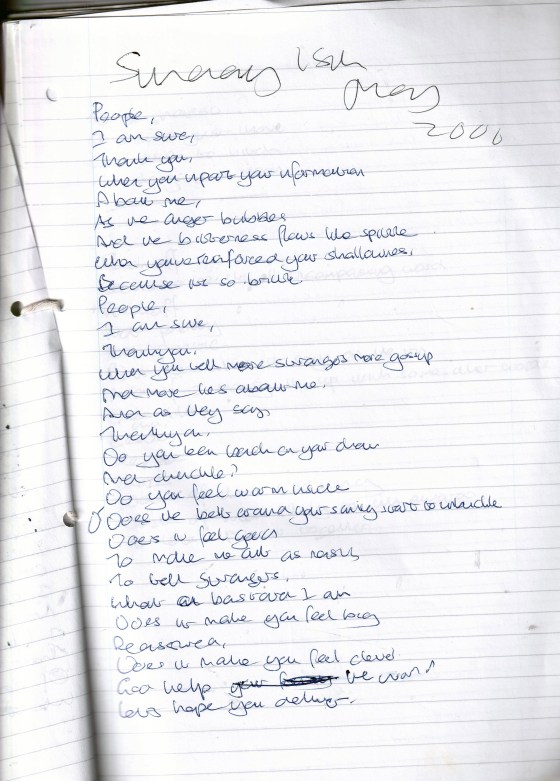 Sunday 15th
May
2006
People,
I am sure,
Thank you,
When you impart your information
About me,
As the anger bubbles
And the bitterness flows like spittle
When you've reinforced your shallowness,
Because its so brittle
People,
I am sure,
Thankyou,
When you tell more strangers more gossip
And more lies about me,
And as they say,
Thankyou.
Do you lean back on your chair
And chuckle?
Do you feel warm inside
Does the belt around your saving start to
Does it feel good
To make me out as nasty
To tell strangers,
What a bastard I am
Does it make you feel big
Reassured,
Does it make you feel clever
God help the world
Lets hope you deliver.